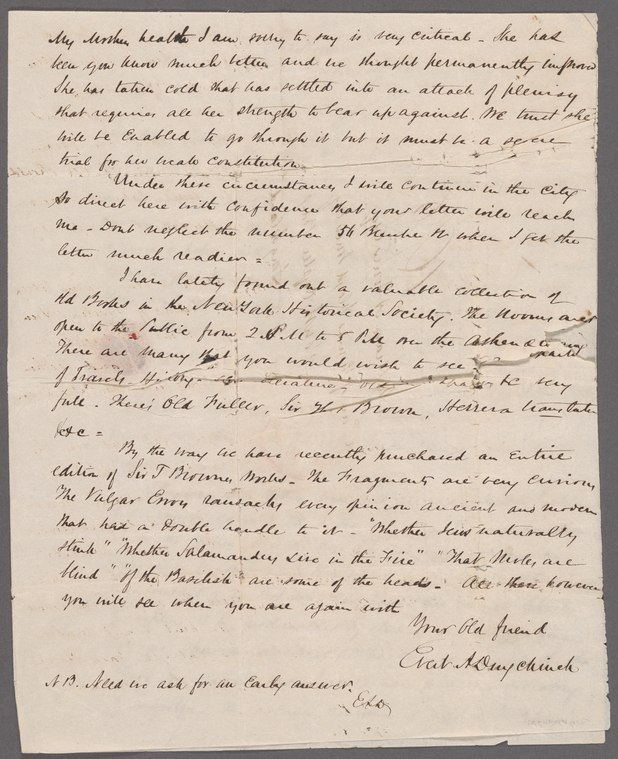 My Mother health I am sorry to say is very critical - She has
been you know much better and we thought permanently improved
She has taken cold that has settled into an attack of pleurisy
that requires all her strength to bear up against. We trust she
will be Enabled to go through it but it must be a severe
trial for her weak constitution
Under these circumstances I will continue in the City
So direct here with confidence that your letter will reach
me - Dont neglect the number 56 when I get the
letter much readier =
I have lately found out a valuable collection of
Old Books in the New York Historical Society. The Rooms are
open to the Public from 2 P.M to 5 PM over the
There are many that you would wish to see
of Travels History &c very
full - There's Old Fuller, Sir Thos Brown, Herrera translated
&c =
By the way we have recently purchased an Entire
edition of Sir T Brownes Works - The Fragments are very curious
The Vulgar Errors ransacks every opinion ancient and modern
That has a double handle to it - "Whether Jews naturally
stink" "Whether Salamanders Live in the Fire" "That Moles are
blind" "Of the Basilisk" are some of the heads - All these however
you will see when you are again with
Your Old friend
Evert A Duyckinck
NB. Need we ask for an Early answer.
EAD